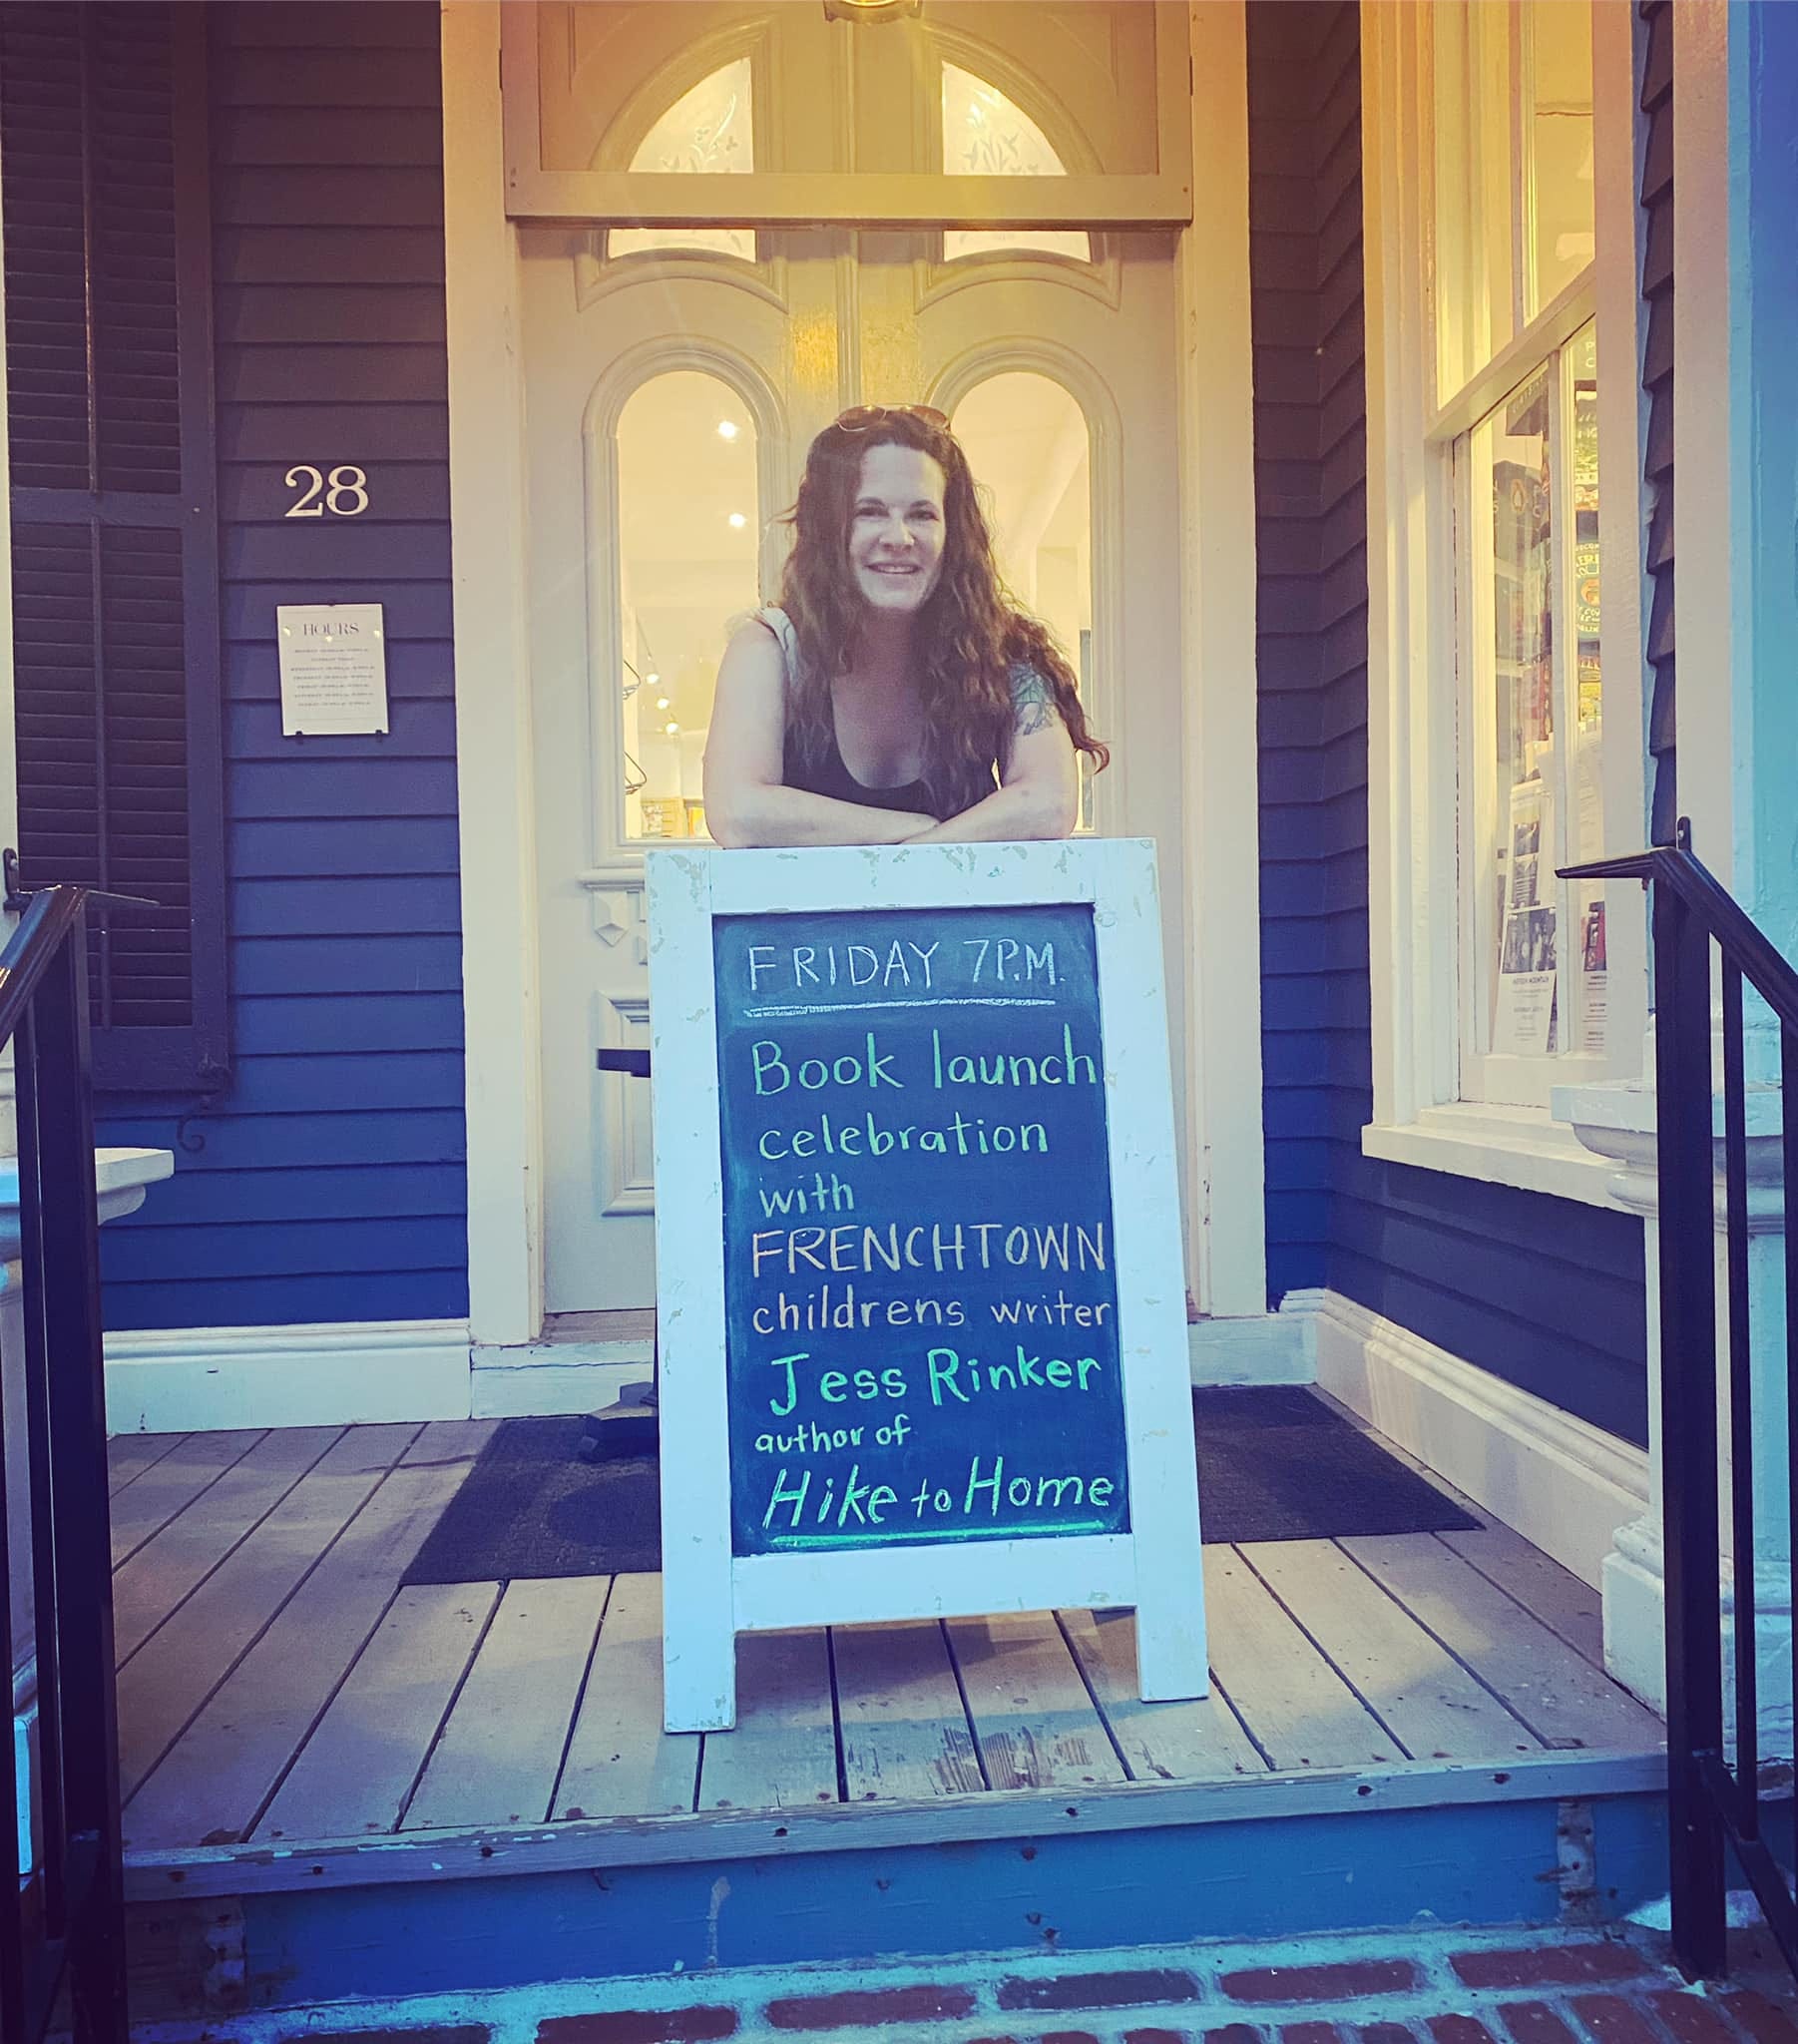 28
HOURS
FRIDAY 7P.M.
Book launch
celebration
with
FRENCHTOWN
childrens writer
Jess Rinker
author of
Hike to Home